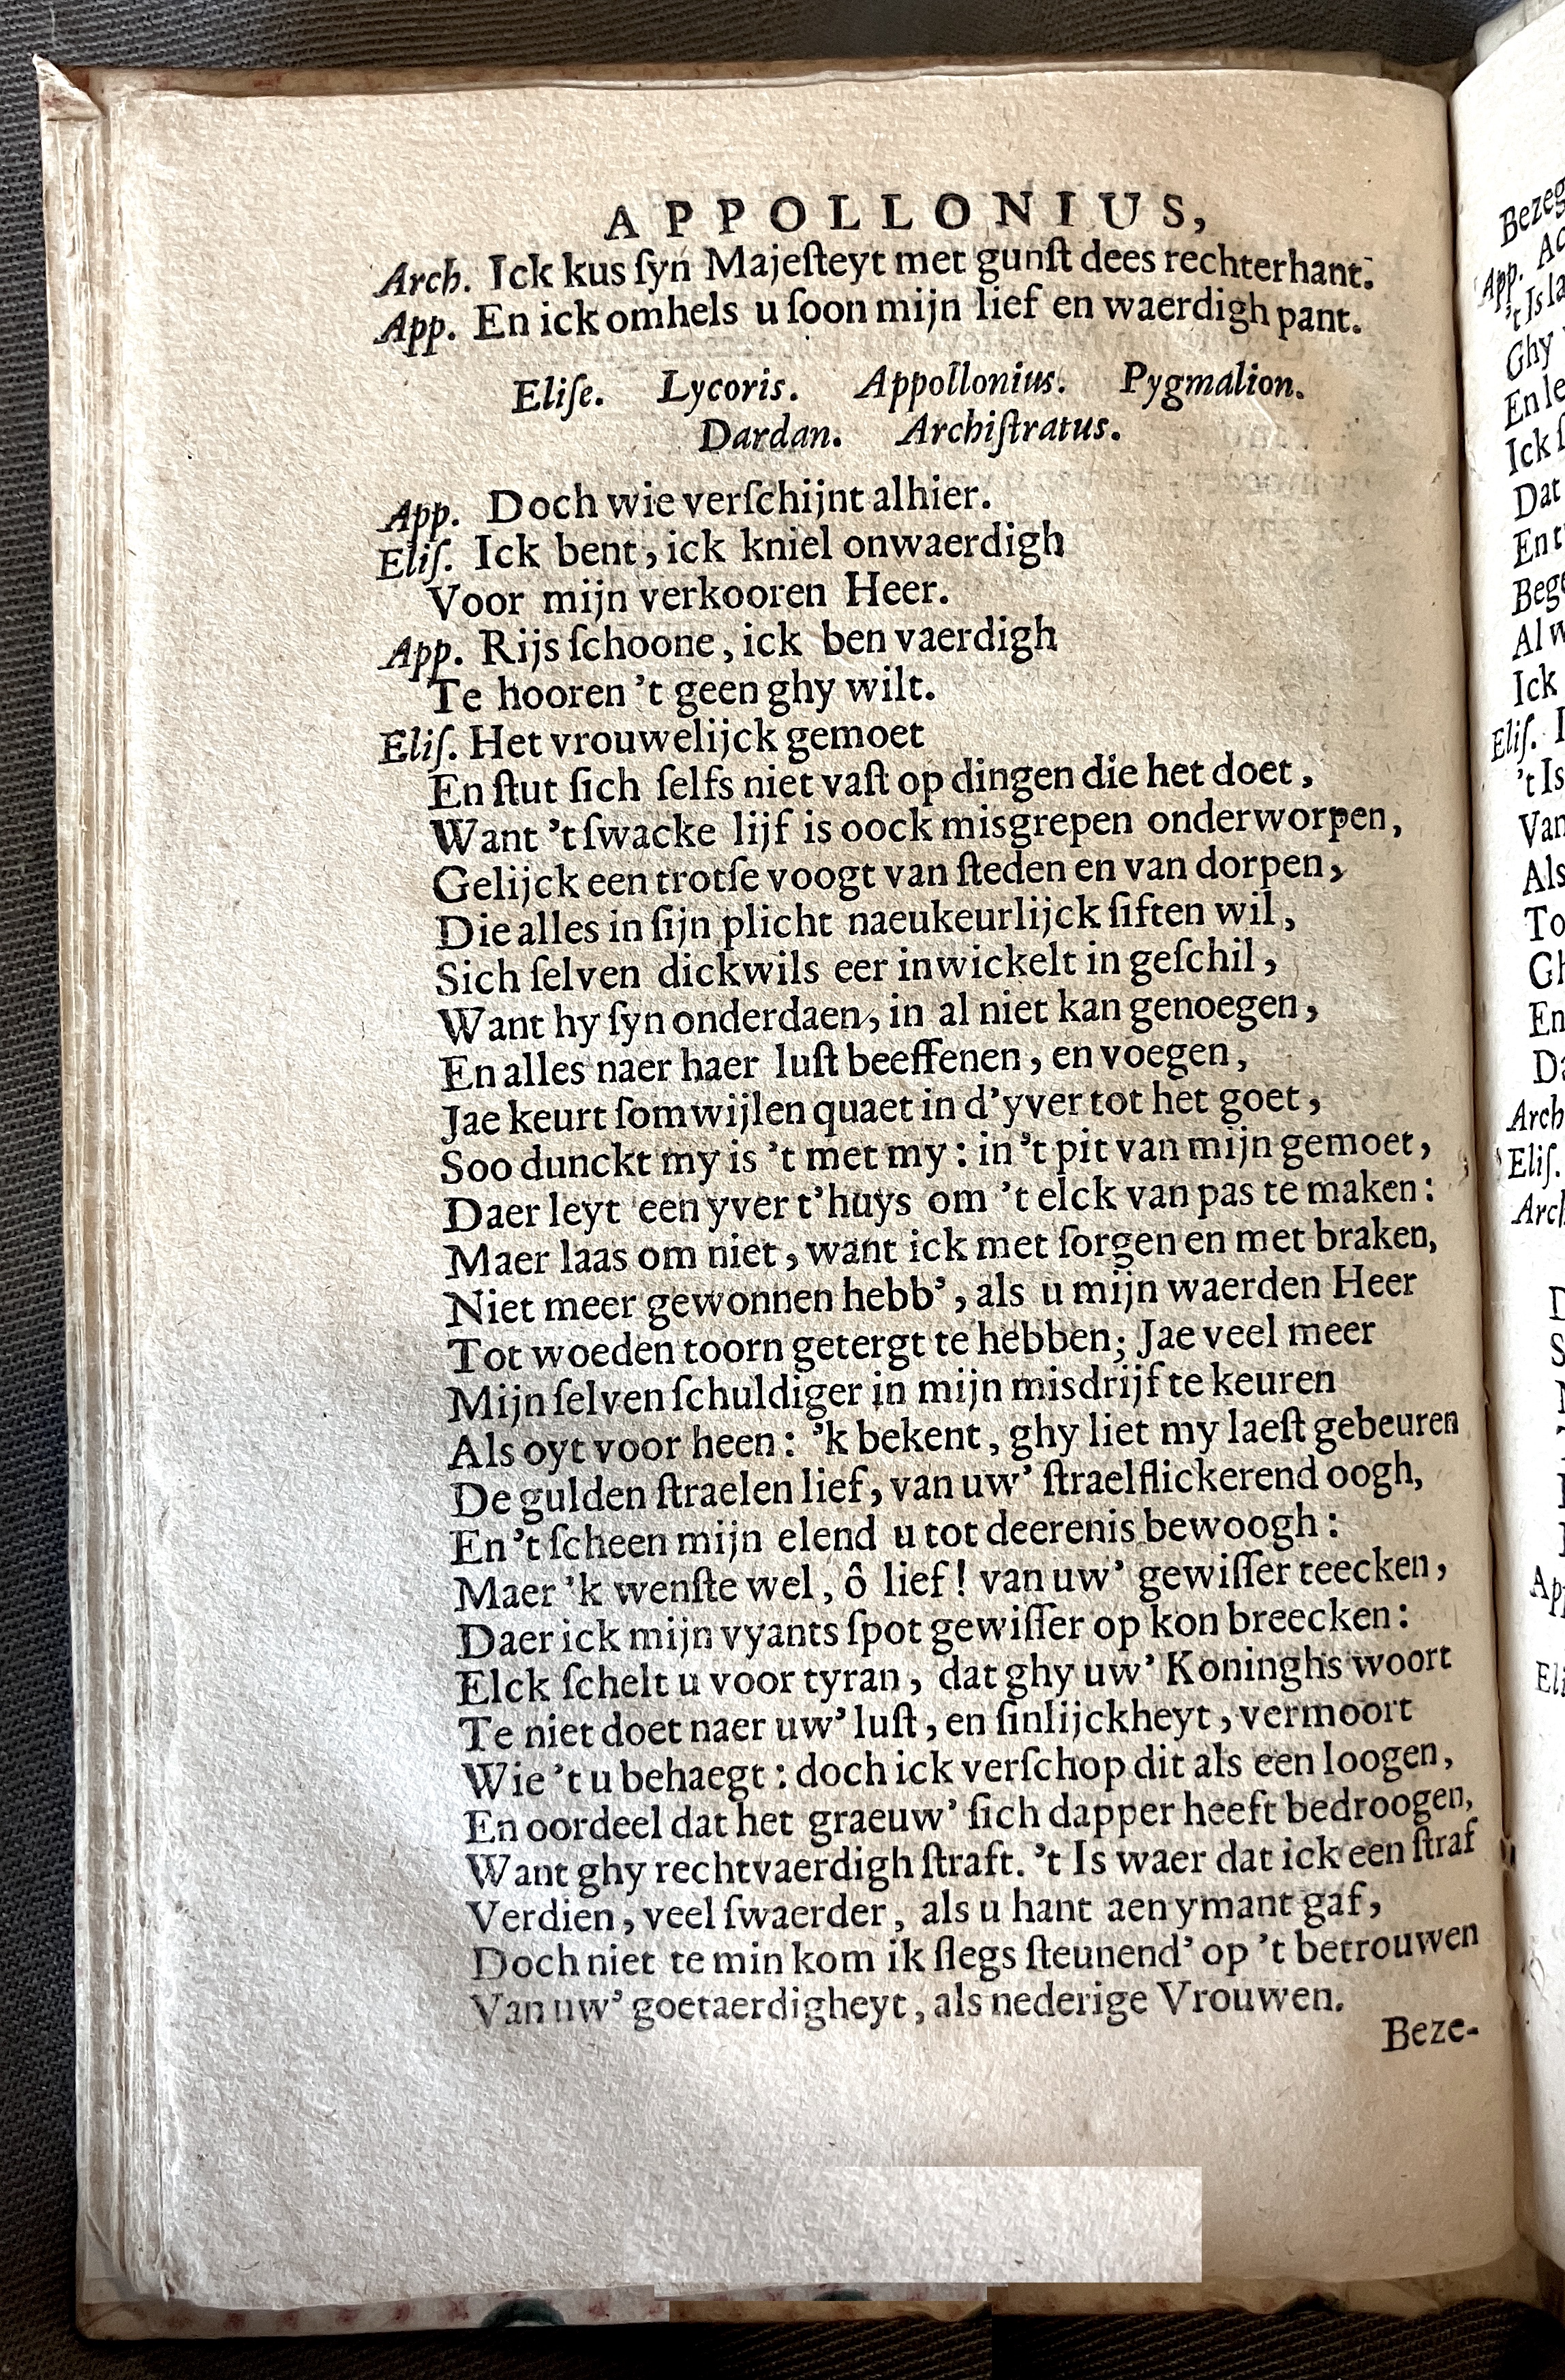 APPOLLONIUS,
Arch. Ick kus ſyn Majeſteyt met gunſt dees rechterhant.
App. En ick omhels u ſoon mijn lief en waerdigh pant.
Eliſe. Lycoris. Appollonius. Pygmalion.
Dardan. Archiſtratus.
App. Doch wie verſchijnt alhier.
Eliſ. Ick bent, ick kniel onwaerdigh
Voor mijn verkooren Heer.
App. Rijs ſchoone, ick ben vaerdigh
Te hooren 't geen ghy wilt.
Eliſ. Het vrouwelijck gemoet
En ſtut ſich ſelfs niet vaſt op dingen die het doet,
Want 't ſwacke lijf is oock misgrepen onderworpen,
Gelijck een trotſe voogt van ſteden en van dorpen,
Die alles in ſijn plicht naeukeurlijck ſiften wil,
Sich ſelven dickwils eer inwickelt in geſchil,
Want hy ſyn onderdaen, in al niet kan genoegen,
En alles naer haer luſt beeffenen, en voegen,
Jae keurt ſomwijlen quaet in d'yver tot het goet,
Soo dunckt my is 't met my: in 't pit van mijn gemoet,
Daer leyt een yver t'huys om 't elck van pas te maken:
Maer laas om niet, want ick met ſorgen en met braken,
Niet meer gewonnen hebb', als u mijn waerden Heer
Tot woeden toorn getergt te hebben; Jae veel meer
Mijn ſelven ſchuldiger in mijn misdrijf te keuren
Als oyt voor heen: 'k bekent, ghy liet my laeſt gebeuren
De gulden ſtraelen lief, van uw' ſtraelflickerend oogh,
En 't ſcheen mijn elend u tot deerenis bewoogh:
Maer 'k wenſte wel, ô lief! van uw' gewiſſer teecken,
Daer ick mijn vyants ſpot gewiſſer op kon breecken:
Elck ſchelt u voor tyran, dat ghy uw' Koninghs woort
Te niet doet naer uw' luſt, en ſinlijckheyt, vermoort
Wie 't u behaegt: doch ick verſchop dit als een loogen,
En oordeel dat het graeuw' ſich dapper heeft bedroogen,
Want ghy rechtvaerdigh ſtraft. 't Is waer dat ick een ſtraf
Verdien, veel ſwaerder, als u hant aen ymant gaf,
Doch niet te min kom ik ſlegs ſteunend' op 't betrouwen
Van uw' goetaerdigheyt, als nederige Vrouwen.
Beze-
Bezeg
App.
't Is
Ghy
Ick
Dat
Bege
Ick
Eliſ. I
't Is
Als
Arch
Eliſ.